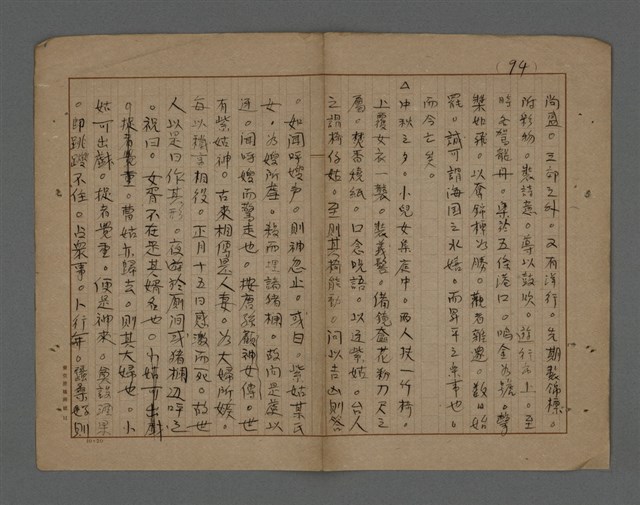 (94)
尚盛。三郊之外。又有洋行。先期製錦標。
附彩物。裝詩意。導以鼓吹。遊行市上。至
時各駕龍舟。集於五條港口。鳴金為號。擊
槳如飛。以奪錦標為勝。觀者雜遝。數日始
罷。誠可謂海國之水嬉。而昇平之樂事也。
而今亡矣。
△中秋之夕。小兒女集庭中。兩人扶一竹椅。
上覆女衣一襲。裝義髻。備鏡奩花粉刀尺之
屬。焚香燒紙。口念咒語。以迓紫姑。台人
謂之椅仔姑。至則其椅能動。問以吉凶則答
。如聞呼嫂聲。則神忽止。或曰。紫姑某氏
女。為嫂所虐。殺而埋諸猪欄。故向是虔以
迓。聞呼嫂而驚走也。按唐孫頠神女傳。世
有紫姑神。古來相傳是人妻。為大婦所嫉。
每以穢言相役。正月十五日感激而死。故世
人以是日作其形。夜於廁間或猪欄迎呼之
。祝曰。女胥不在是其婿名也。小姑可出戲
。捉者覺重。曹姑亦歸去。則其大婦也。小
姑可出戲。捉者覺重。便是神來。奠設酒果
。即跳躞不住。占衆事。卜行年。蠶桑